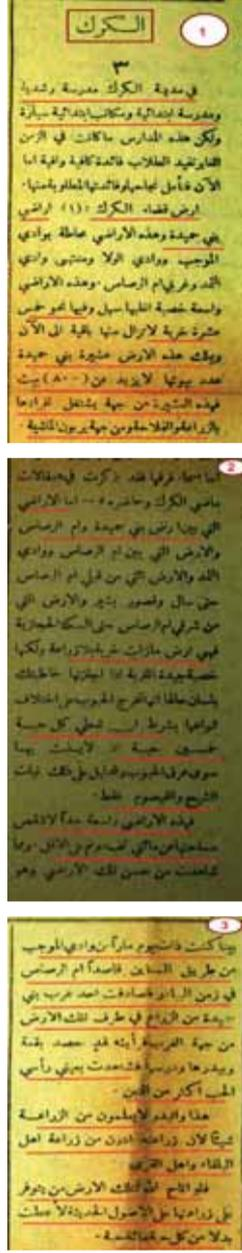 الكرك
1
٣
في مدينة الكرك مدرسة رشدية
ومدرسة ابتدائية ومكاتب ابتدائية سيارة
ولكن هذه المدارس ما كانت في الزمن
الغابر تفيد الطلاب فائدة كافية وافية اما
الآن فنأمل نجاحها وفائدتها المطلوبة منها.
ارض قضاء الكرك: (١) اراضي
بني حميدة وهذه الاراضي محاطة بوادي
الموجب ووادي الولا ومنتهى وادي
الثمد وغربي ام الرصاص. وهذه الاراضي
واسعة خصبة اغلبها سهل وفيها نحو خمس
عشرة خربة لا تزال منها باقية الى الآن
ويملك هذه الارض عشيرة بني حميدة
عدد بيوتها لا يزيد عن (٨٠٠) بيت
فهذه العشيرة من جهة يشتغل افرادها
بالزراعة والفلاحة ومن جهة يربون الماشية.
2
اما اسماء فرقها فقد ذكرت في مقالات
ماضي الكرك وحاضره اما الاراضي
التي بين ارض بني حميدة وام الرصاص
والارض التي بين ام الرصاص ووادي
الثمد والارض التي من قبلي ام الرصاص
حتى سال وقصور بشير والارض التي
من شرقي ام الرصاص حتى السكة الحجازية
فهي ارض
خصبة جيدة التربة اذا اجتزتها خاطبتك
بلسان حالها انها تخرج الحبوب على اختلاف
انواعها بشرط ان تعطي كل حبة
خمسين حبة اذ لا ينبت بها
سوى والدليل على ذلك نبات
الشيح والقيصوم فقط.
فهذه الاراضي واسعة جداً لا تنقص
مساحتها عن مائتي الف دونم على الاقل. ومما
شاهدت من حسن تلك الاراضي وهو
3
بينما كنت ذات يوم ماراً من وادي الموجب
من طريق قاصداً ام الرصاص
في زمن فصادفت احد عرب بني
حميدة من الزراع في طرف تلك الارض
من جهة الغرب رأيته قد حصد بقعة
وبيدرها ودرسها فشاهدت بعيني رأسي
الحب اكثر من التبن.
هذا والبدو لا يعلمون من الزراعة
شيئاً لان زراعتهم ادون من زراعة اهل
البلقاء واهل القرى.
فلو اتاح الله لتلك الارض من يتوفر
على زراعتها على الاصول الحديثة لا عطت
بدلا من كل حبة مائة حبة.